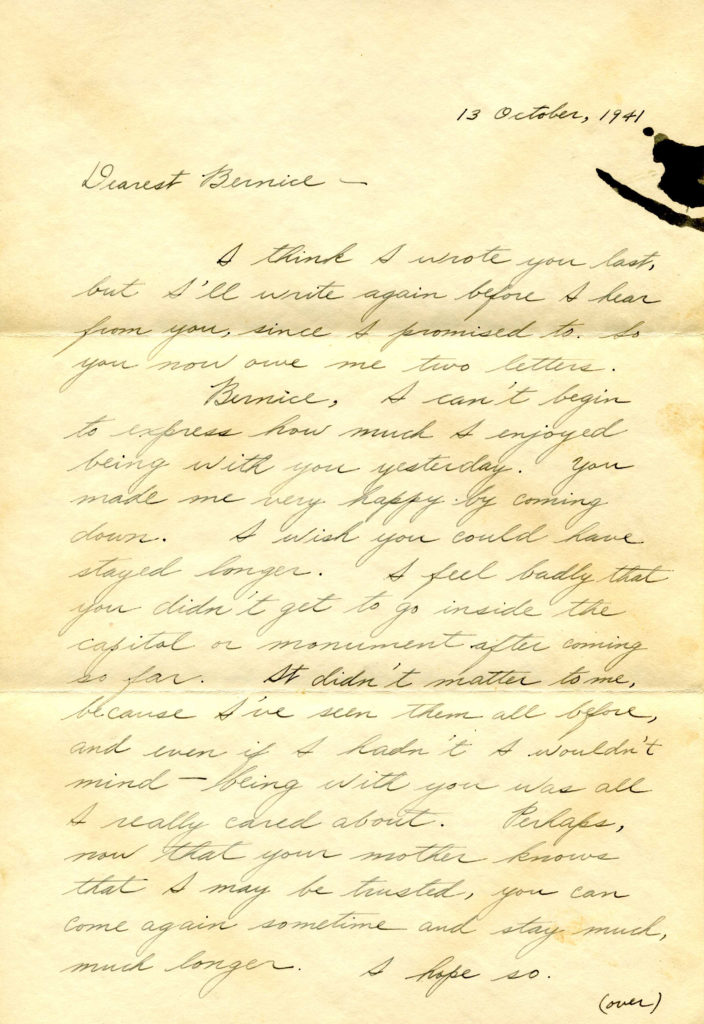 13 October, 1941
Dearest Bernice —
I think I wrote you last,
but I'll write again before I hear
from you, since I promised to. So
you now owe me two letters.
Bernice, I can't begin
to express how much I enjoyed
being with you yesterday. You
made me very happy by coming
down. I wish you could have
stayed longer. I feel badly that
you didn't get to go inside the
capitol or monument after coming
so far. It didn't matter to me,
because I've seen them all before,
and even if I hadn't I wouldn't
mind — being with you was all
I really cared about. Perhaps,
now that your mother knows
that I may be trusted, you can
come again sometime and stay much,
much longer. I hope so.
(over)